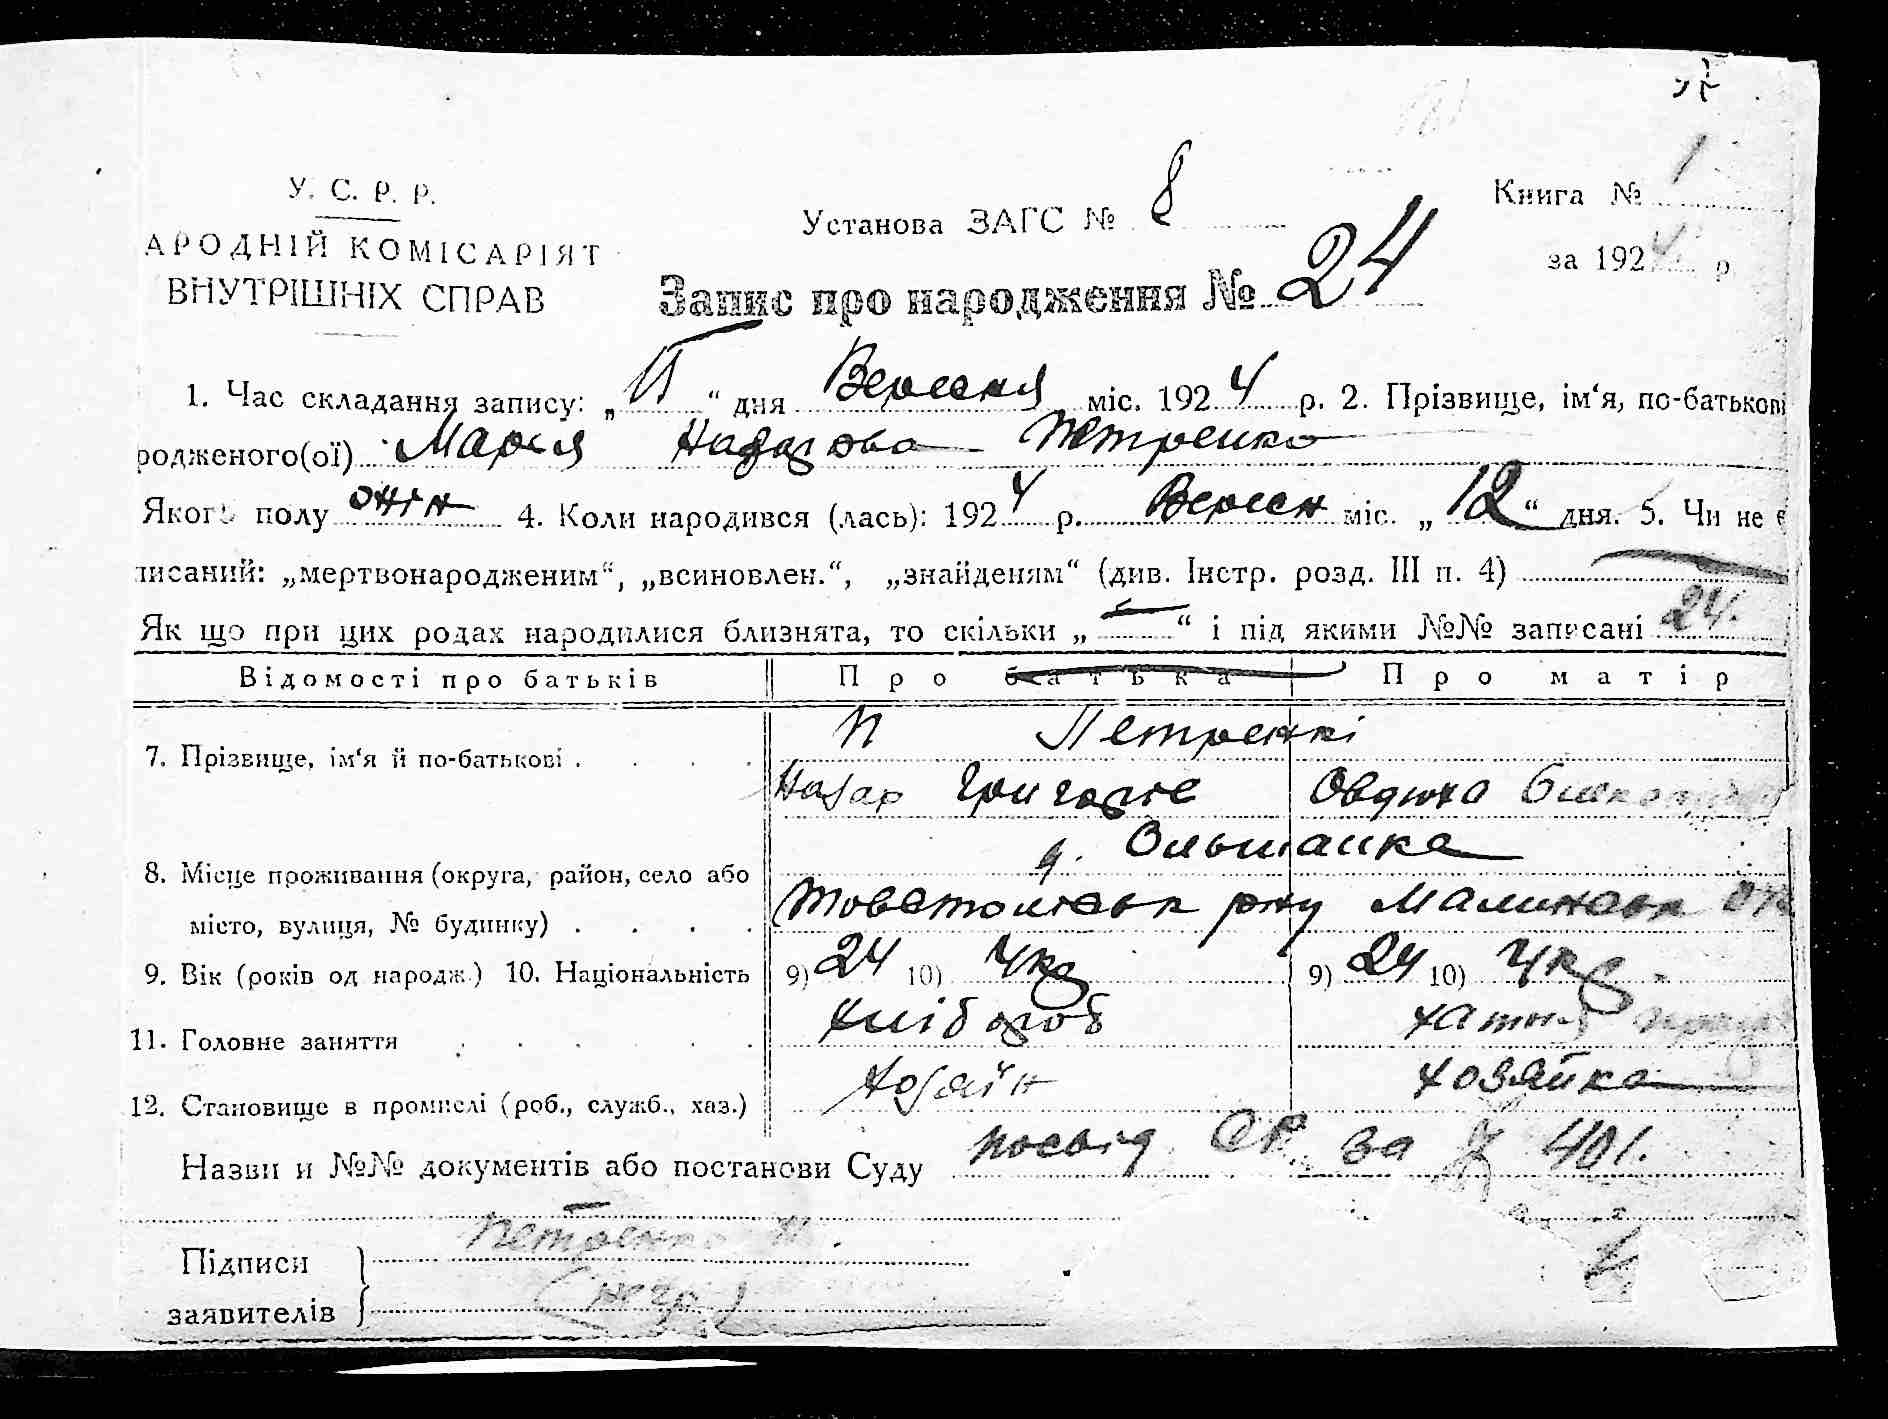 У. С. Р. Р.
АРОДНІЙ КОМІСАРІЯТ
ВНУТРІШНІХ СПРАВ
Установа ЗАГС № 8
Книга № 1
за 1924 р.
Запис про народження № 24
1. Час складання запису: „ “ дня Вересня міс. 1924 р. 2. Прізвище, ім‘я, по-батькові
родженого(ої) Марія Назарова Петренко
Якого полу жін 4. Коли народився (лась): 1924 р. Вересн міс. „12“ дня. 5. Чи не є
писаний: „мертвонародженим“, „всиновлен.“, „знайденим“ (див. Інстр. розд. III п. 4)
Як що при цих родах народилися близнята, то скільки „—“ і під якими №№ записані 24.
Відомості про батьків Про батька Про матір
7. Прізвище, ім‘я й по-батькові . . . . Петренкі
Назар Григорів Овдюха
8. Місце проживання (округа, район, село або місто, вулиця, № будинку) . . . . Ольшанка
рну Малинськ
9. Вік (років од народж.) 10. Національність 9) 24 10) Укр 9) 24 10) Укр.
11. Головне заняття . . . . . . хлібороб хатня
12. Становище в промислі (роб., служб., хаз.) хозяїн хозяйка
Назви и №№ документів або постанови Суду посвід СР за № 401.
Підписи Петренко Н.
заявителів